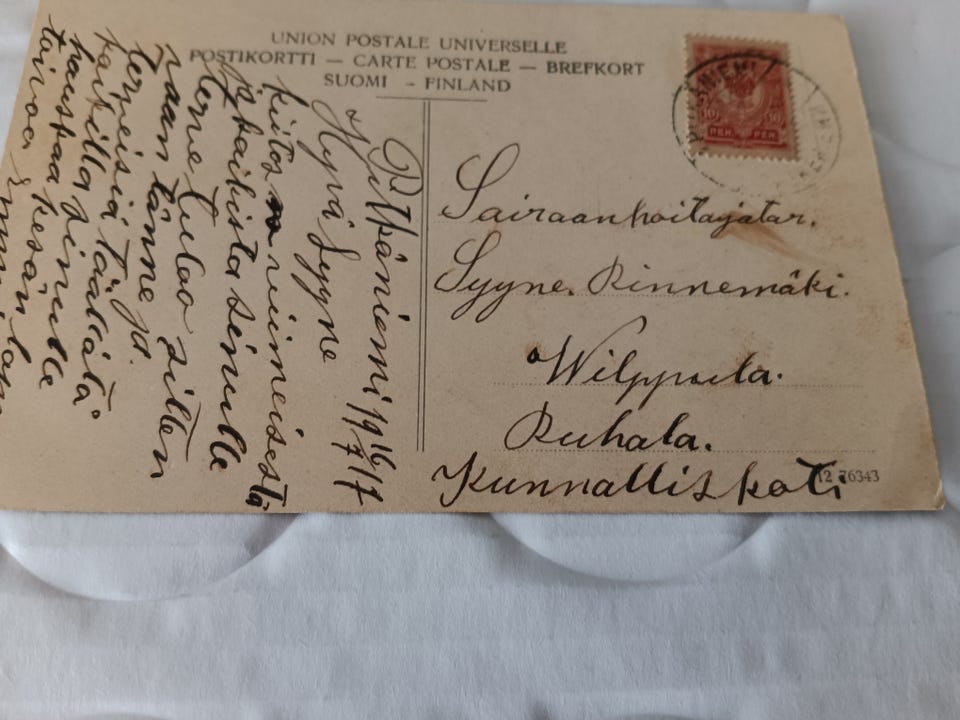 UNION POSTALE UNIVERSELLE
POSTIKORTTI — CARTE POSTALE — BREFKORT
SUOMI - FINLAND
10 10
PEN. PEN.
Sairaanhoitajatar.
Syyne. Rinnemäki.
Wilppula.
Ruhala.
Kunnallis koti
12 76343
Pitkäniemi 19 16/7 17
Hyvä Syyne
kiitos viimeisestä
ja kaikista sinulle
terve tuloo sitten
vaan tänne ja
terveisiä täältä
kaikilta sinulle
hauskaa kesän
toivoo